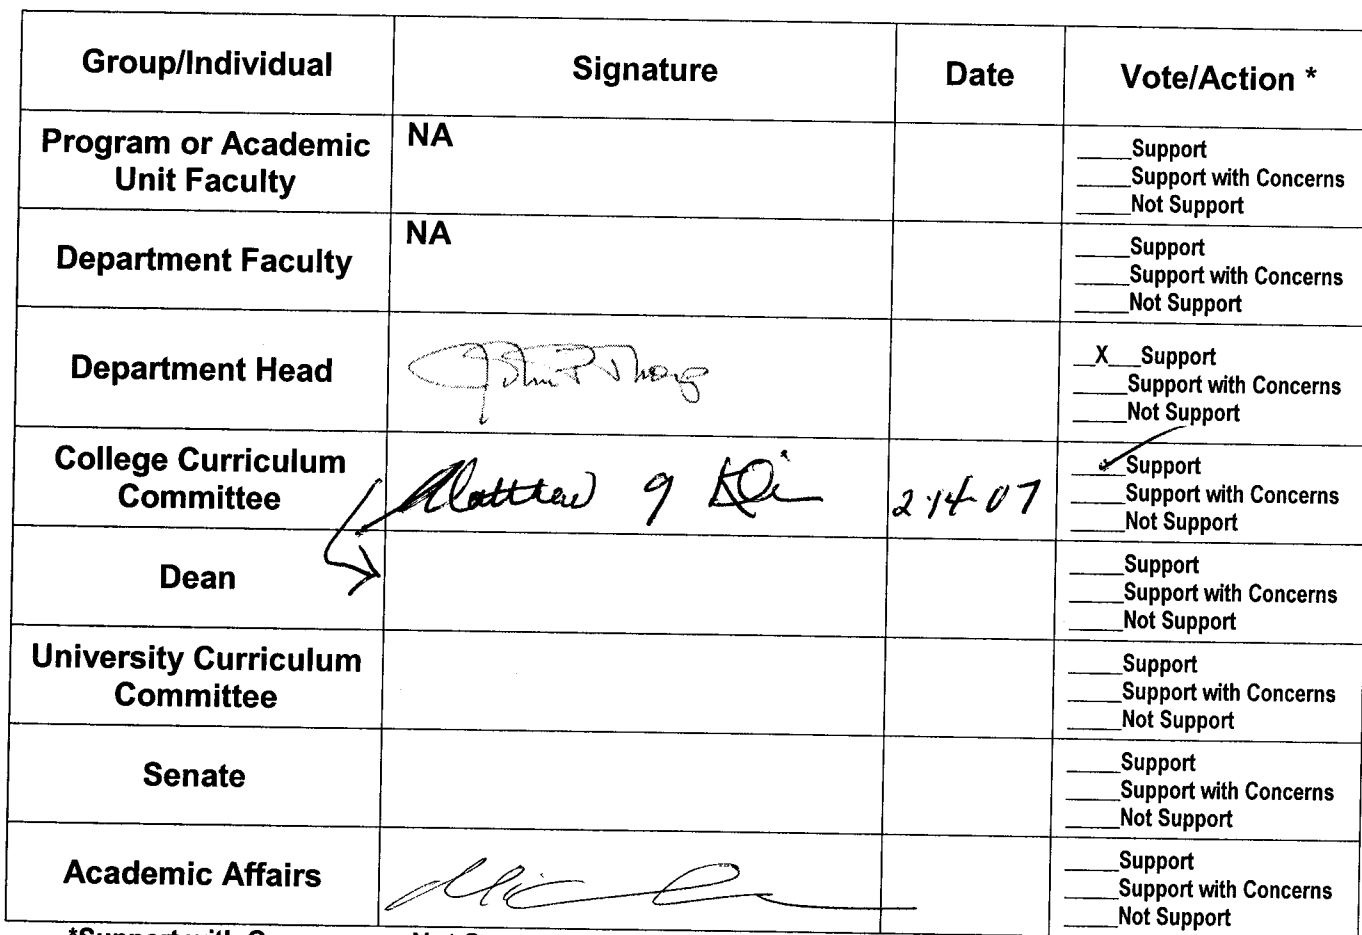 Group/Individual Signature Date Vote/Action *
Program or Academic Unit Faculty NA
____Support
____Support with Concerns
____Not Support
Department Faculty NA
____Support
____Support with Concerns
____Not Support
Department Head John P Thorp
__X___Support
____Support with Concerns
____Not Support
College Curriculum Committee Matthew Klein 2-14-07
____Support
____Support with Concerns
____Not Support
Dean
____Support
____Support with Concerns
____Not Support
University Curriculum Committee
____Support
____Support with Concerns
____Not Support
Senate
____Support
____Support with Concerns
____Not Support
Academic Affairs
____Support
____Support with Concerns
____Not Support